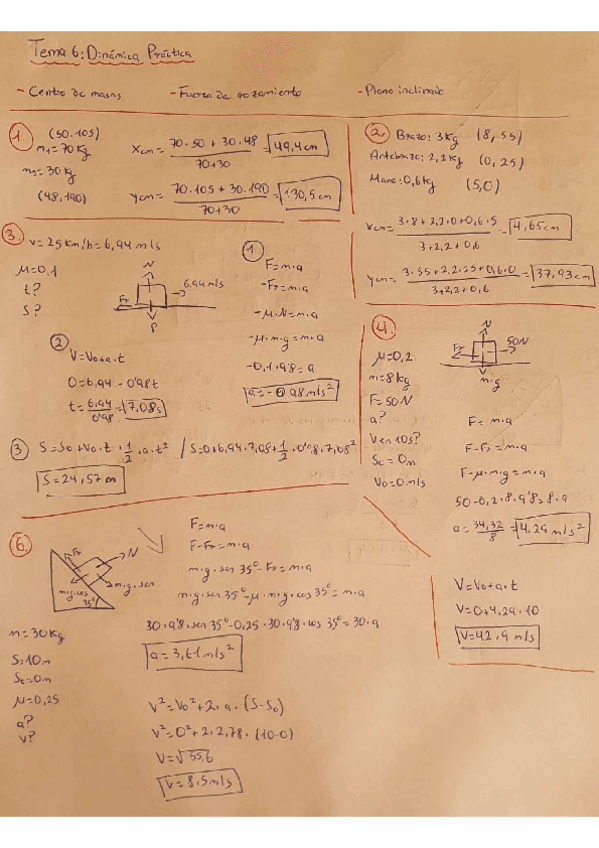 Tema 6: Dinámica Práctica
- Centro de masas - Fuerza de rozamiento - Plano inclinado
1. (50.105)
m1=70Kg
m2=30Kg
(48,190)
Xcm= 70·50 + 30·48 / 70+30 = 49,4cm
Ycm= 70·105 + 30·190 / 70+30 = 130,5cm
2. Brazo: 3Kg (8,55)
Antebrazo: 2,2Kg (0,25)
Mano: 0,6Kg (5,0)
Xcm= 3·8+2,2·0+0,6·5 / 3+2,2+0,6 = 4,65cm
Ycm= 3·55+2,2·25+0,6·0 / 3+2,2+0,6 = 37,93cm
3. V=25Km/h=6,94m/s
μ=0,1
t?
S?
N
6,94m/s
Fr
P
1
F=m·a
-Fr=m·a
-μ·N=m·a
-μ·m·g=m·a
-0,1·9,8=a
a=-0,98m/s²
2
V=Vo+a·t
0=6,94-0'98t
t= 6,94 / 0'98 = 7,08s
3 S=So+Vo·t+1/2·a·t² / S=0+6,94·7,08+1/2·0'98·7,08²
S=24,57m
4.
N
50N
Fr
m·g
μ=0,2
m=8Kg
F=50N
a?
V en 10s?
So=0m
Vo=0m/s
F=m·a
F-Fr=m·a
F-μ·m·g=m·a
50-0,2·8·9'8=8·a
a= 34,32 / 8 = 4,29m/s²
V=Vo+a·t
V=0+4,29·10
V=42,9m/s
6.
Fr
N
m·g·sen
m·g·cos
35°
m=30Kg
S=10m
So=0m
μ=0,25
a?
v?
F=m·a
F-Fr=m·a
m·g·sen35°-Fr=m·a
m·g·sen35°-μ·m·g·cos35°=m·a
30·9'8·sen35°-0,25·30·9'8·cos35°=30·a
a=3,61m/s²
V²=Vo²+2·a·(S-So)
V²=0²+2·2,78·(10-0)
V=√55,6
V=8,5m/s